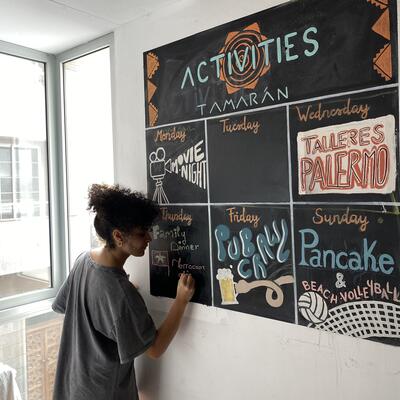 ACTIVITIES
TAMARÁN
Monday
MOVIE
NIGHT
Tuesday
Wednesday
TALLERES
PALERMO
Thursday
Family
Dinner
Morroccan
Friday
PUB
CRAWL
Sunday
Pancake
&
BEACH VOLLEYBALL